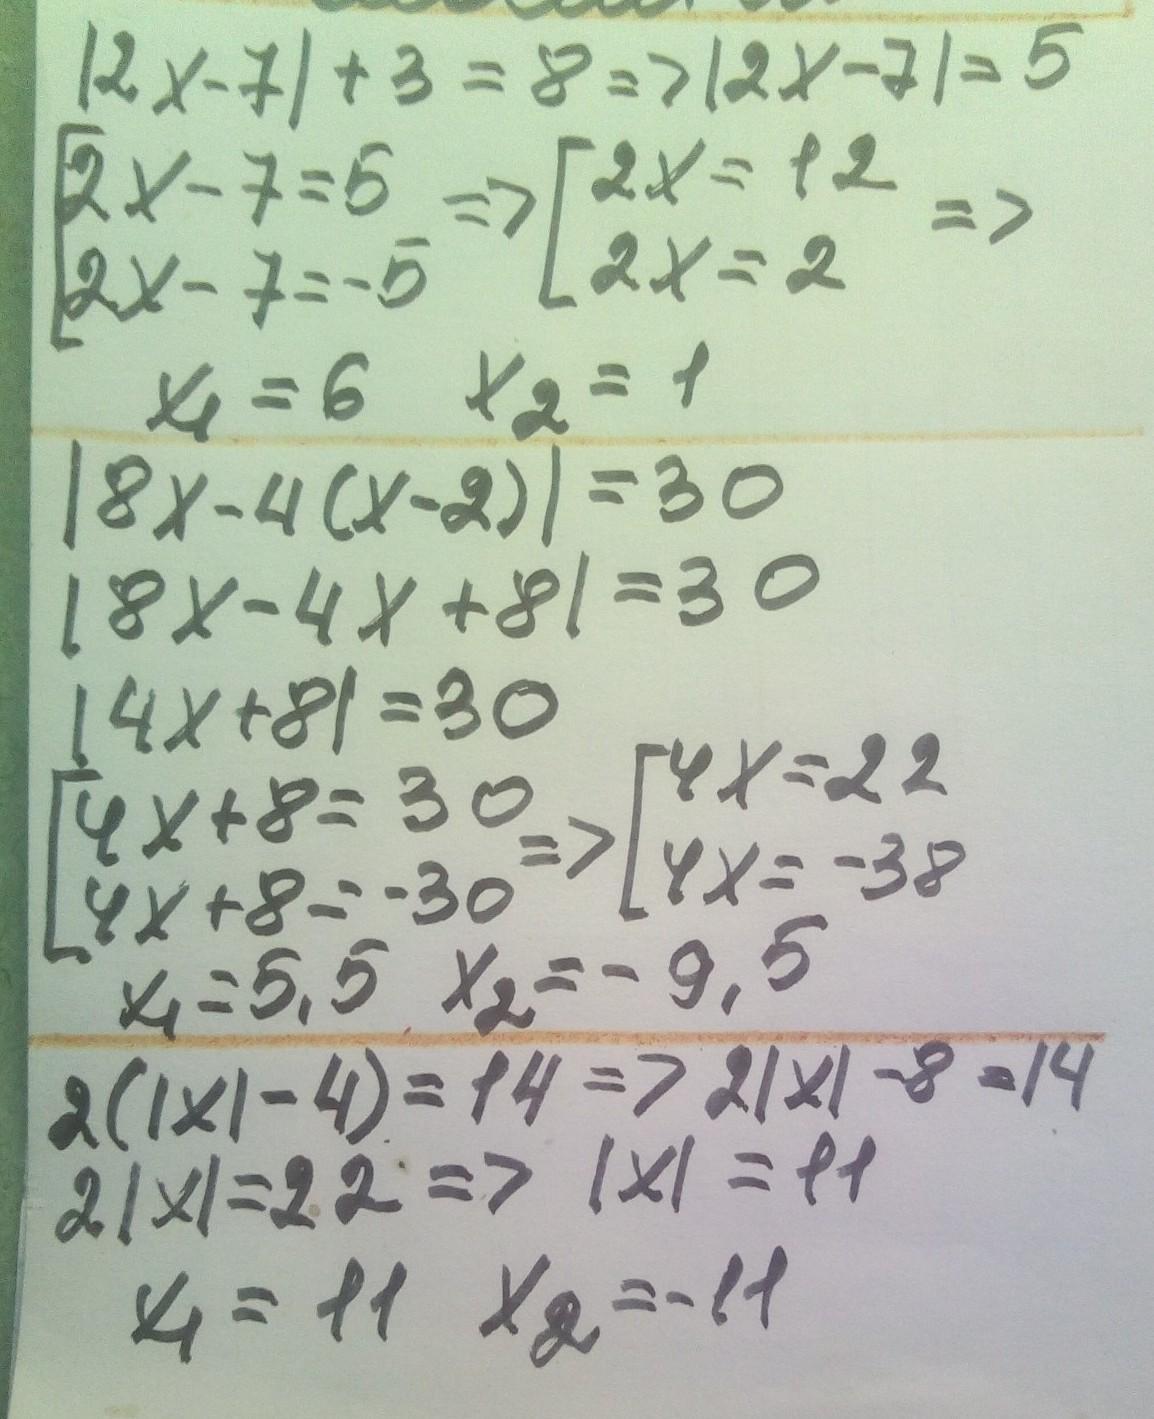 |2x-7|+3=8=>|2x-7|=5
[2x-7=5 => [2x=12 =>
2x-7=-5 2x=2
x1=6 x2=1
|8x-4(x-2)|=30
|8x-4x+8|=30
|4x+8|=30
[4x+8=30 => [4x=22
4x+8=-30 4x=-38
x1=5,5 x2=-9,5
2(|x|-4)=14=>2|x|-8=14
2|x|=22=> |x|=11
x1=11 x2=-11